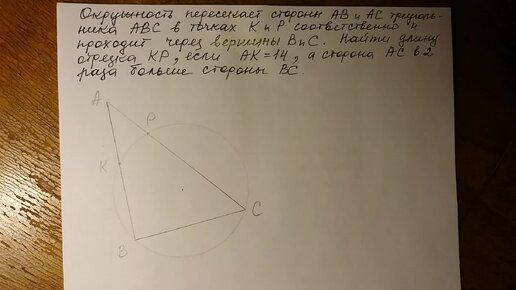 Окружность пересекает стороны АВ и АС треуголь-
ника АВС в точках К и Р соответственно и
проходит через вершины В и С. Найти длину
отрезка КР, если АК=14, а сторона АС в 2
раза больше стороны ВС.
А
Р
К
С
В